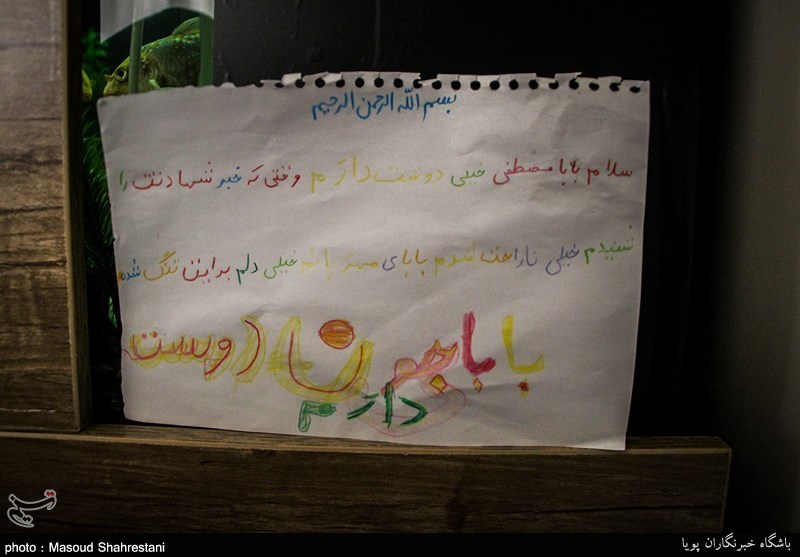 بسم الله الرحمن الرحیم
سلام بابا مصطفی خیلی دوست دارم وقتی که خبر شهادتت را
شنیدم خیلی ناراحت شدم بابای مهربانم خیلی دلم برایت تنگ شده
بابا جون دوست
دارم
تسنیم
photo : Masoud Shahrestani
باشگاه خبرنگاران پویا